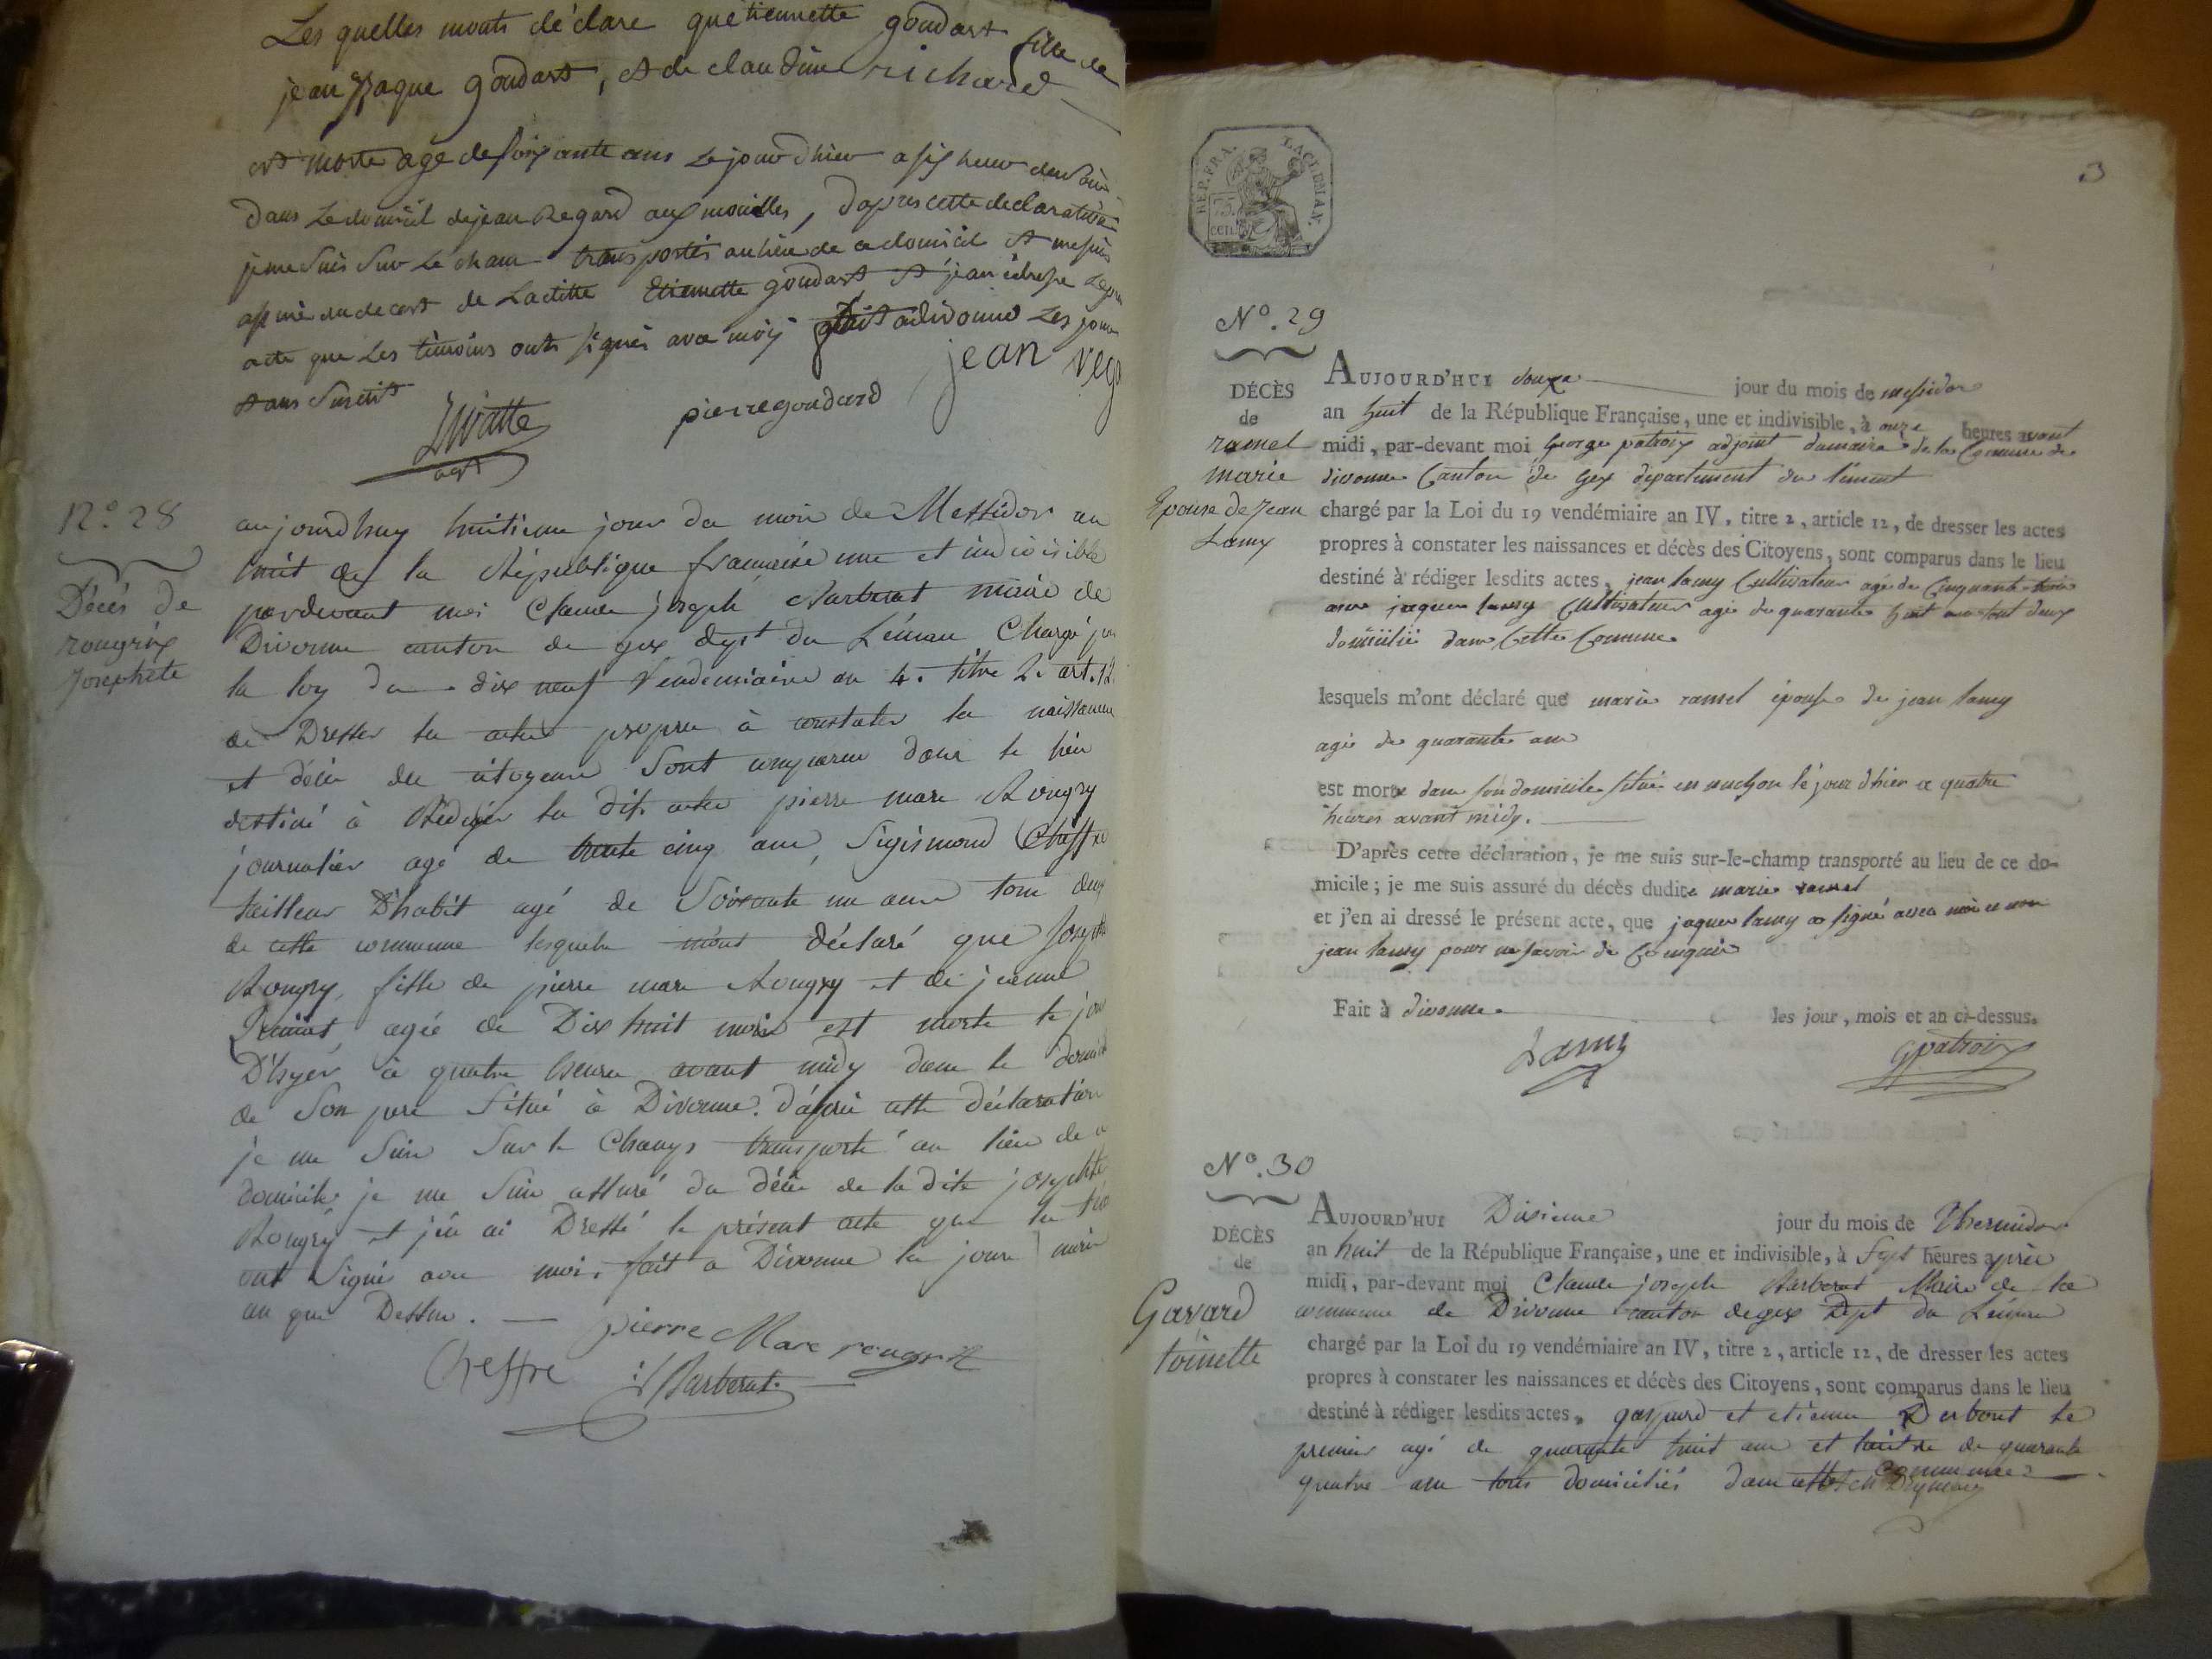 Les quelles monts déclare quetiennette goudart fille de
jean Jaque goudart, et de claudine richard
est morte age de soixante ans Le jour dhier a six heur du soir
dans Le domicil de jean Regard aux mouilles, d'apres cette declaration
je me suis sur Le cham transportés au lieu de ce domicil et me suis
assuré du deces de Laditte Etiennette goudart et j'ean
acte que Les témoins onts signés avec moy fait a divonne Les jour
et ans susdit
pierre goudard
jean rega
agt
N.° 28
Décés de
rougrix
Josephete
aujourdhuy huitieme jour du mois de Messidor an
huit de la République francaise une et indivisible
pardevant moi Claude joseph Barberat maire de
Divonne canton de gex dept du Léman Chargé par
la loy du dix neuf Vendemiaire an 4. titre 2. art. 12.
de Dresser les actes propres à constater les naissances
et décés des citoyens Sont comparus dans le lieu
destiné à Rédiger les dits actes pierre marc Rougry
journalier agé de trente cinq ans, Sigismond Cheffre
tailleur D'habit agé de Soixante un ans tous deux
de cette commune lesquels m'ont déclaré que Josephte
Rougry, fille de pierre marc Rougry et de jeanne
agée de Dix huit mois est morte le jour
D'hyér à quatre heures avant midy dans le domicile
de Son pere Situé à Divonne. d'après cette déclaration
je me Suis Sur le Champs transporté au lieu de ce
domicile je me Suis assuré du décés de la dite josephte
Rougry et j'en ai Dressé le présent acte que les
ont Signé avec moi. fait a Divonne les jour mois
an que Dessus.
pierre Marc rougrix
Cheffre
Barberat
3
REP. FRA.
N°. 29
DÉCÈS
de
ramel
marie
Epouse de Jean
Lamy
AUJOURD'HUI douze jour du mois de messidor
an huit de la République Française, une et indivisible, à onze heures avant
midi, par-devant moi george patroix adjoint du maire de la Commune de
divonne Canton de Gex département du léman
chargé par la Loi du 19 vendémiaire an IV, titre 2, article 12, de dresser les actes
propres à constater les naissances et décès des Citoyens, sont comparus dans le lieu
destiné à rédiger lesdits actes, jean lamy Cultivateur agé de Cinquante trois
ans jaques lamy Cultivateur agé de quarante huit ans tout deux
domicilié dans Cette Commune
lesquels m'ont déclaré que marie ramel épouse de jean lamy
agée de quarante ans
est morte dans son domicile situé en le jour d'hier a quatre
heures avant midy.
D'après cette déclaration, je me suis sur-le-champ transporté au lieu de ce do-
micile; je me suis assuré du décès dudite marie ramel
et j'en ai dressé le présent acte, que jaques lamy a signé avec moi et non
jean lamy pour ne savoir de Ce enquis
Fait à divonne les jour, mois et an ci-dessus.
Lamy
G patroix
N°. 30
DÉCÈS
de
Gavard
toinette
AUJOURD'HUI Dixieme jour du mois de Thermidor
an huit de la République Française, une et indivisible, à Sept heures après
midi, par-devant moi Claude joseph Barberat Maire de la
commune de Divonne canton de gex Dept du Léman
chargé par la Loi du 19 vendémiaire an IV, titre 2, article 12, de dresser les actes
propres à constater les naissances et décès des Citoyens, sont comparus dans le lieu
destiné à rédiger lesdits actes, gaspard et etienne Derbout le
premier agé de quarante huit ans et l'autre de quarante
quatre ans tous domiciliés dans cette commune